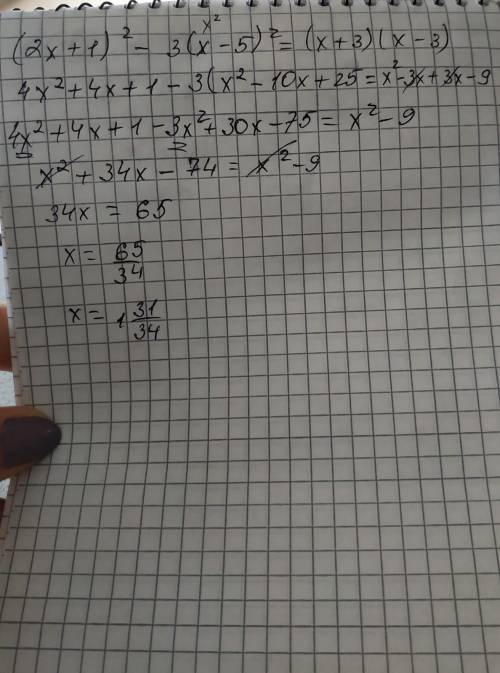 x²
(2x+1)² - 3(x-5)² = (x+3)(x-3)
4x²+4x+1-3(x²-10x+25=x²-3x+3x-9
4x²+4x+1-3x²+30x-75=x²-9
x²+34x-74=x²-9
34x=65
x=65/34
x=1 31/34